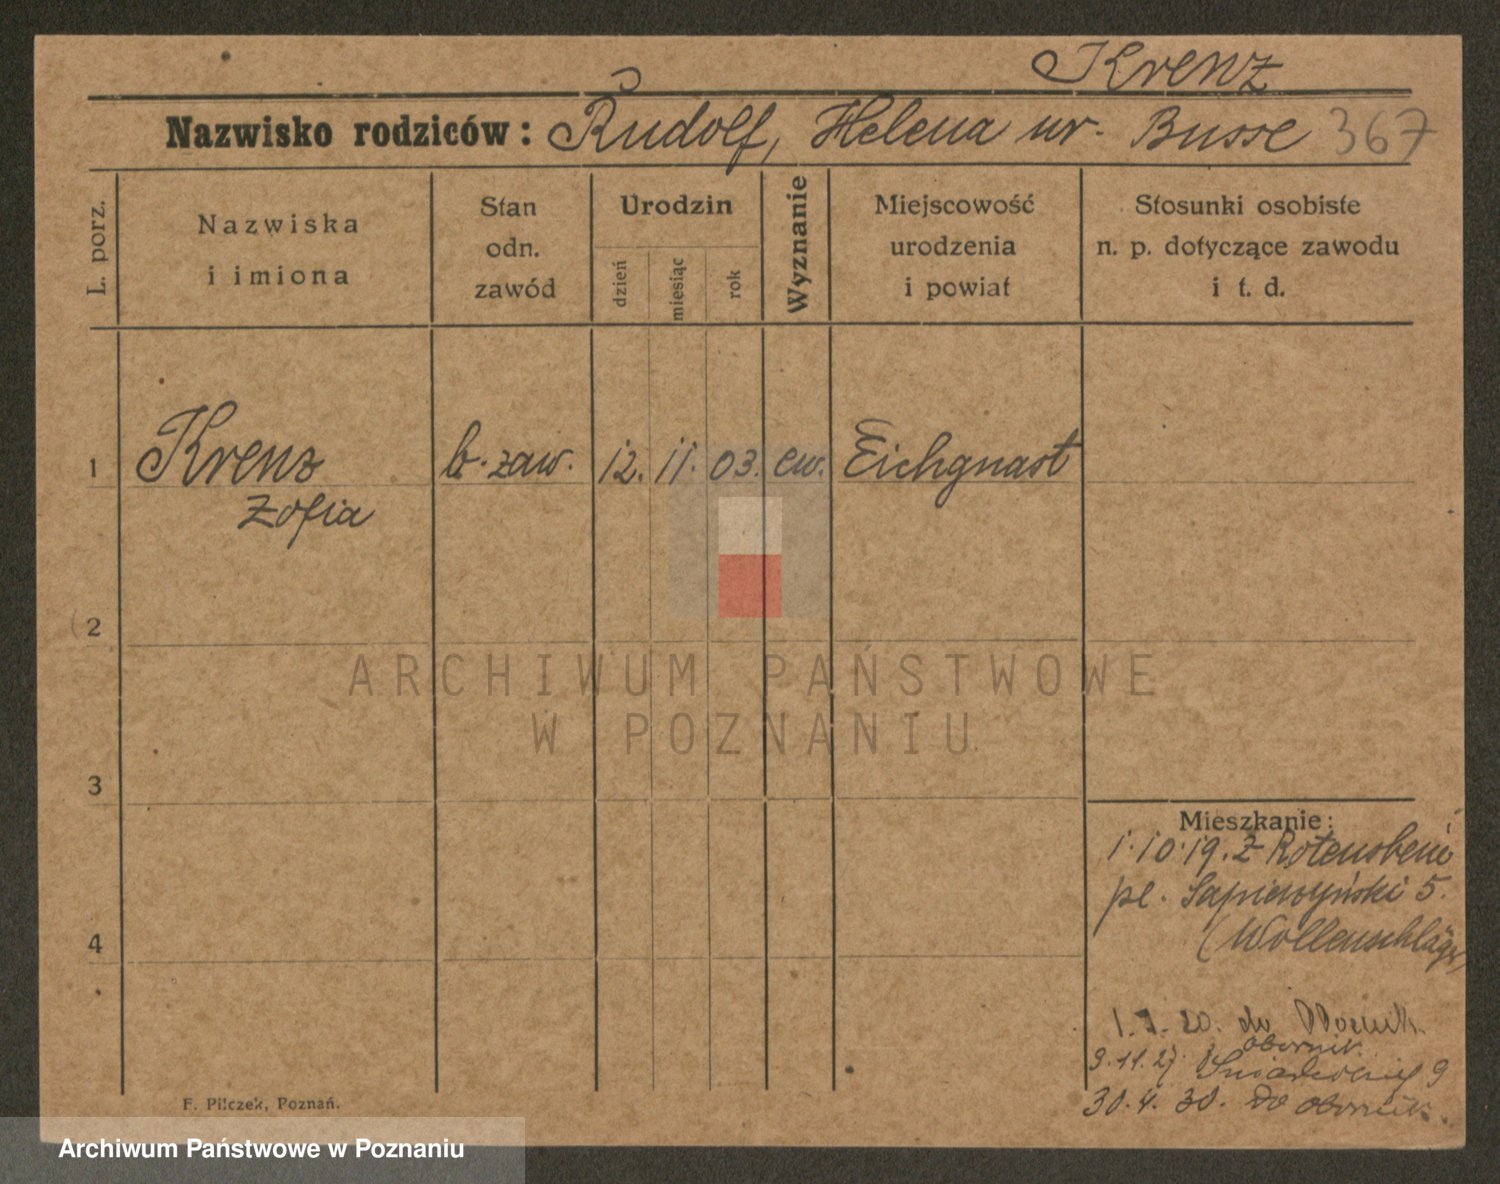 Krenz
Nazwisko rodziców: Rudolf, Helena ur. Busse 367
L. porz.
Nazwiska
i imiona
Stan
odn.
zawód
Urodzin
dzień
miesiąc
rok
Wyznanie
Miejscowość
urodzenia
i powiat
Stosunki osobiste
n. p. dotyczące zawodu
i t. d.
1 Krenz b. zaw. 12. 11. 03. ew. Eichgnast
Zofia
2
3
4
Mieszkanie:
1.10.19. z
pl. 5.
(Wollenschläger)
1.7.20. do
Obornik.
9.11.27. 9
30.4.30. do Obornik.
F. Pilczek, Poznań.
ARCHIWUM PAŃSTWOWE
W POZNANIU
Archiwum Państwowe w Poznaniu